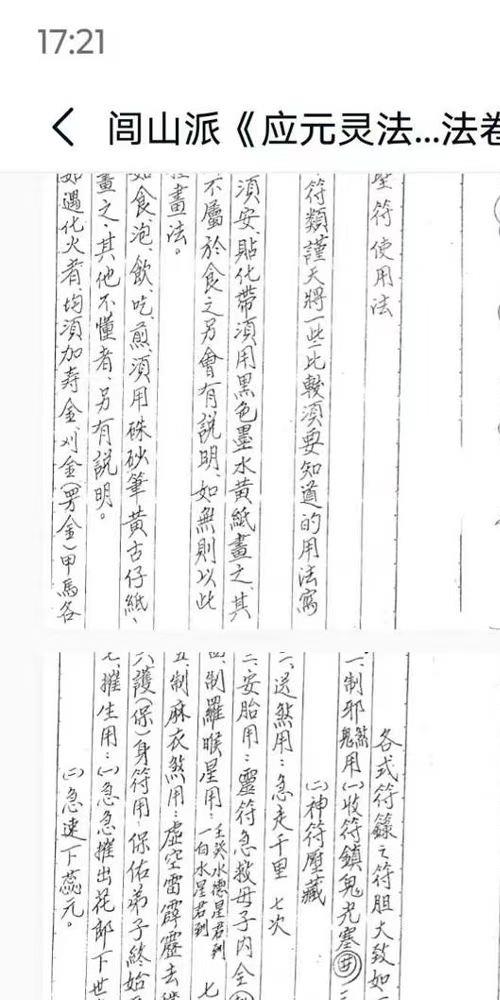 17:21
闾山派《应元灵法...法卷
符使用法
符類謹天將一些比較須要知道的用法寫
須安、貼化帶須用黑色墨水黃紙畫之、其
不屬於食之另會有說明、如無則以此
畫法。
如食泡、飲吃煎須用硃砂筆黃古仔紙、
畫之、其他不懂者、另有說明。
如遇化火者、均須加寿金刈金(男金)甲馬各
各式符籙之符胆大致如
一、制邪煞鬼用(一)收符鎮鬼
(二)神符壓藏
二、送煞用:急走千里 七次
三、安胎用:靈符急救母子內全
制羅睺星用:壬癸水德星君到
一白水星君到 七
五、制麻衣煞用:虛空雷霹靂去
六、護(保)身符用、保佑弟子終始
七、摧生用:(一)急急摧出花郎下世
(二)急速下蕊元。